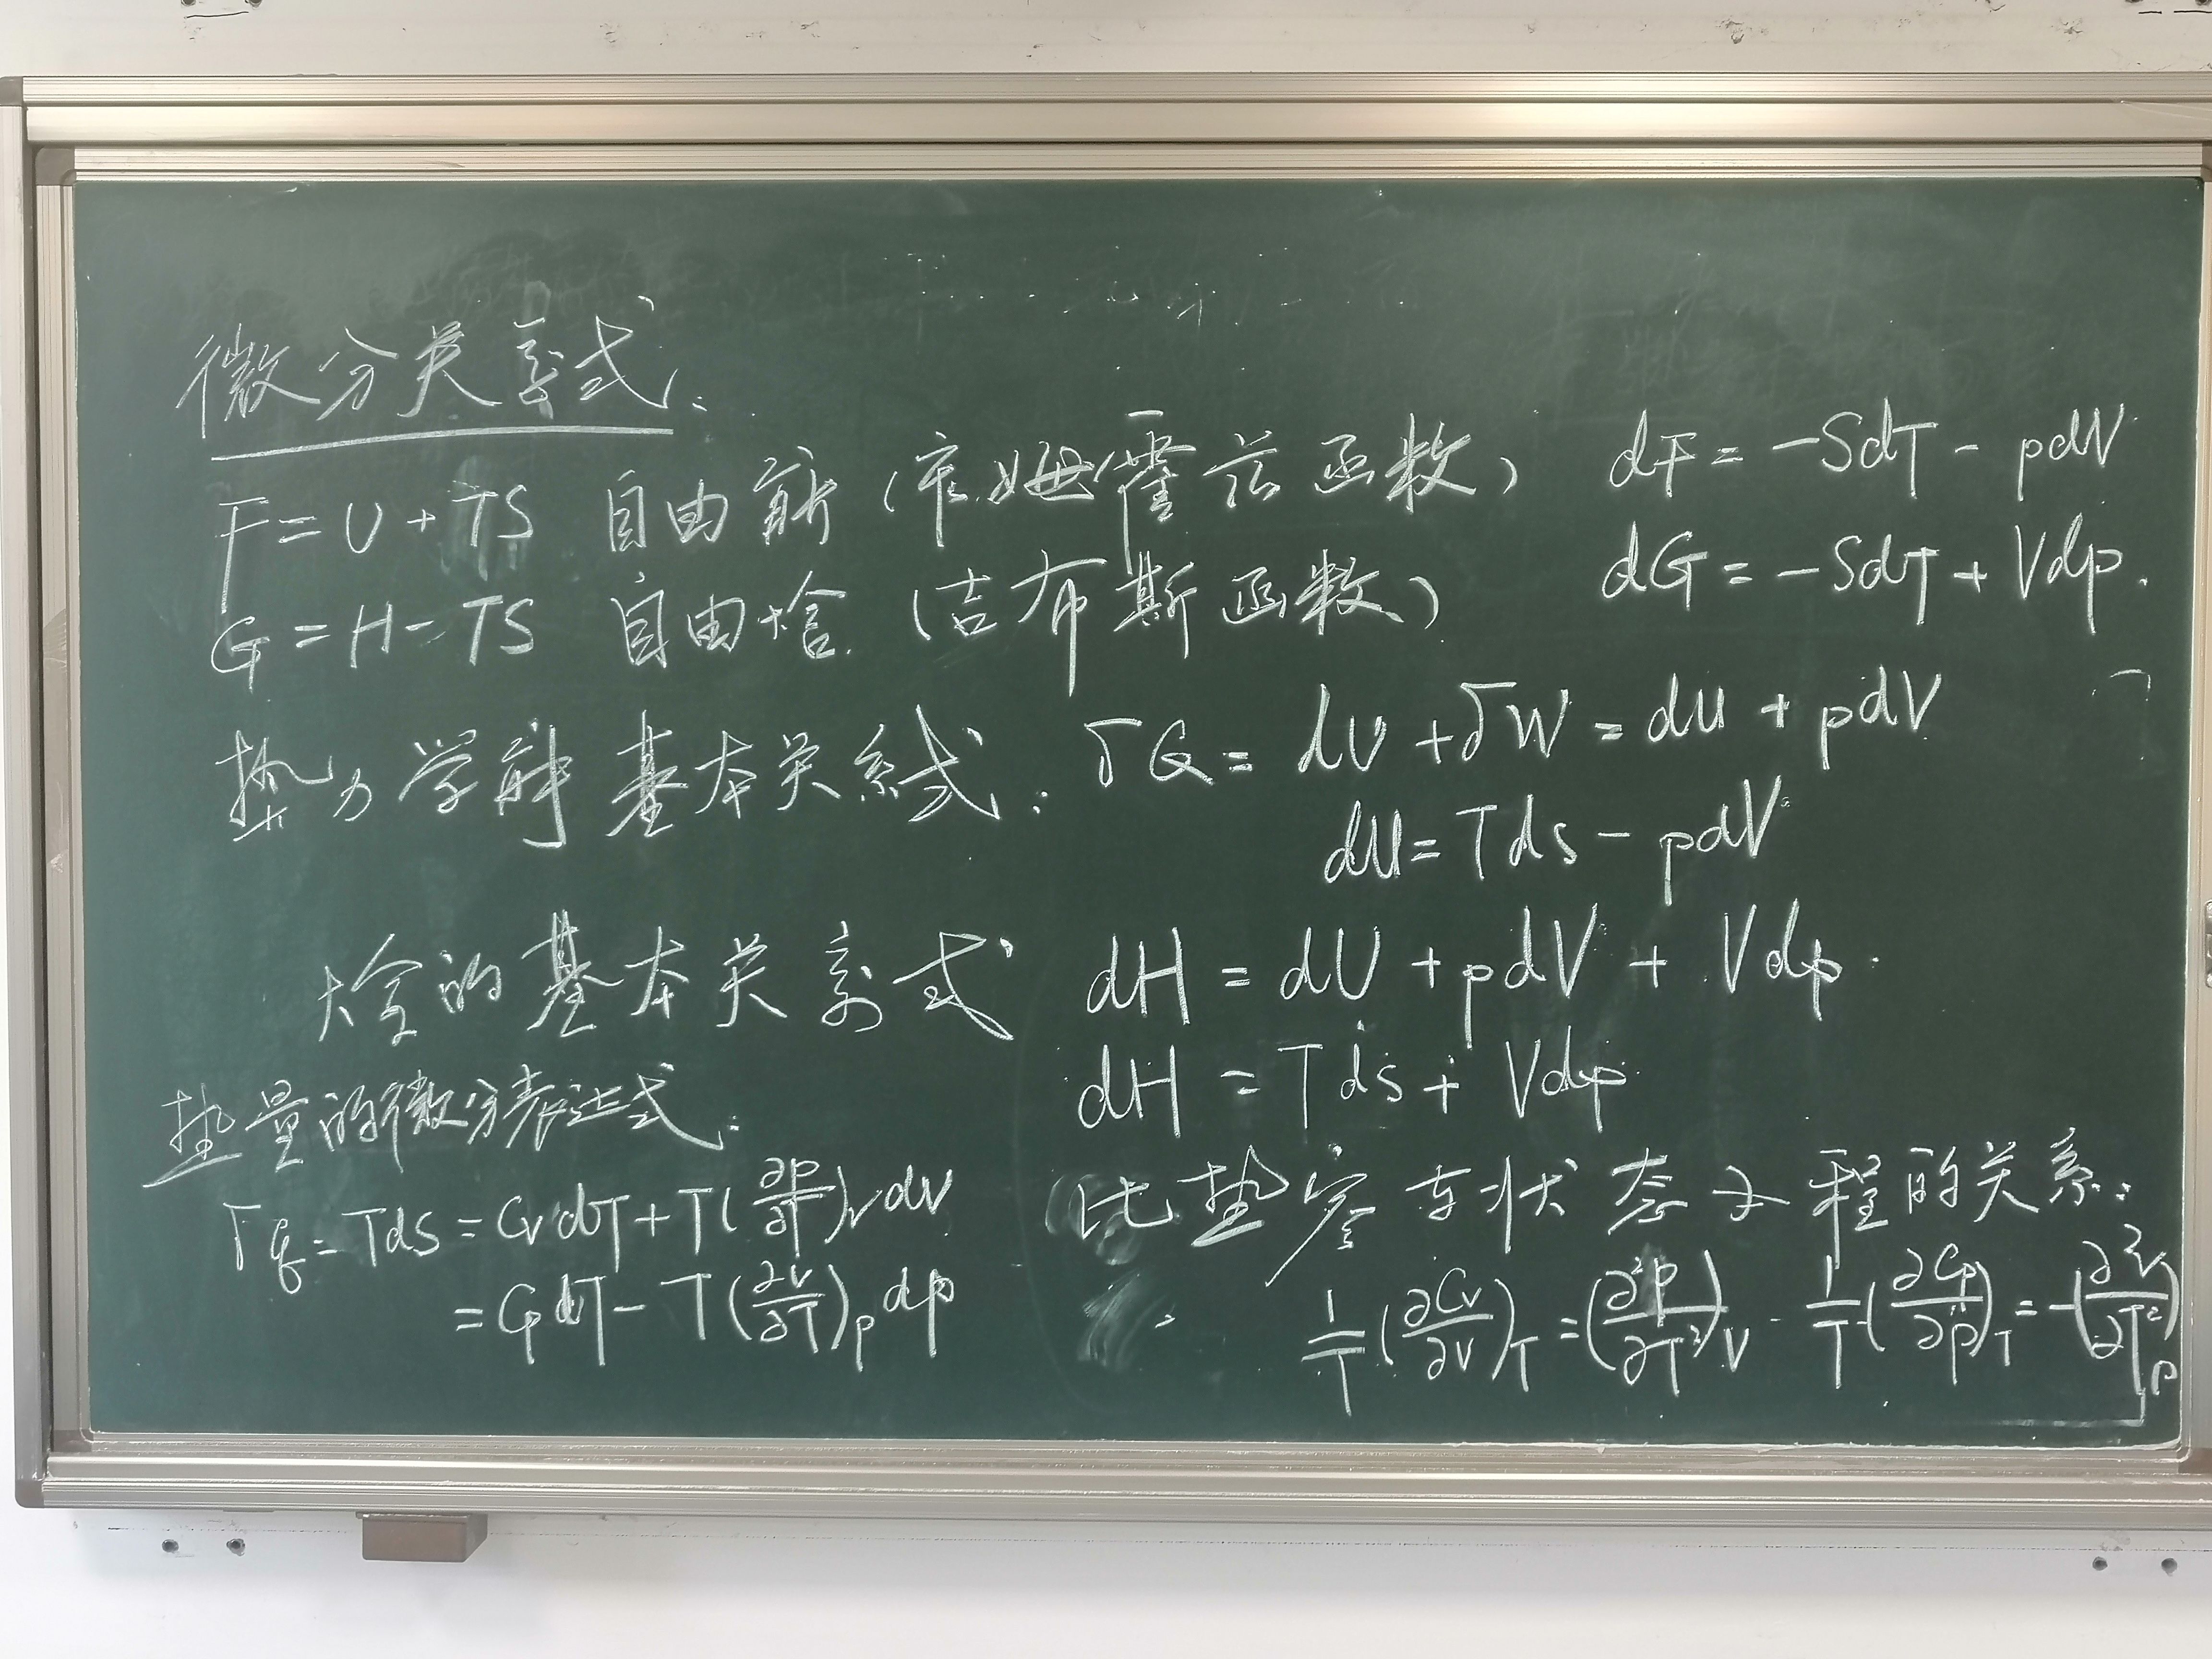 微分关系式:
F = U + TS 自由能 (亥姆霍兹函数) dF = -SdT - pdV
G = H - TS 自由焓 (吉布斯函数) dG = -SdT + Vdp.
热力学能基本关系式: δQ = dU + δW = dU + pdV
dU = Tds - pdV
焓的基本关系式 dH = dU + pdV + Vdp.
dH = Tds + Vdp
热量的微分表达式:
δq = Tds = CvdT + T(∂p/∂T)v dv
= CpdT - T(∂v/∂T)p dp
比热容与状态方程的关系:
1/T (∂Cv/∂v)T = (∂²p/∂T²)v 1/T (∂Cp/∂p)T = -(∂²v/∂T²)p